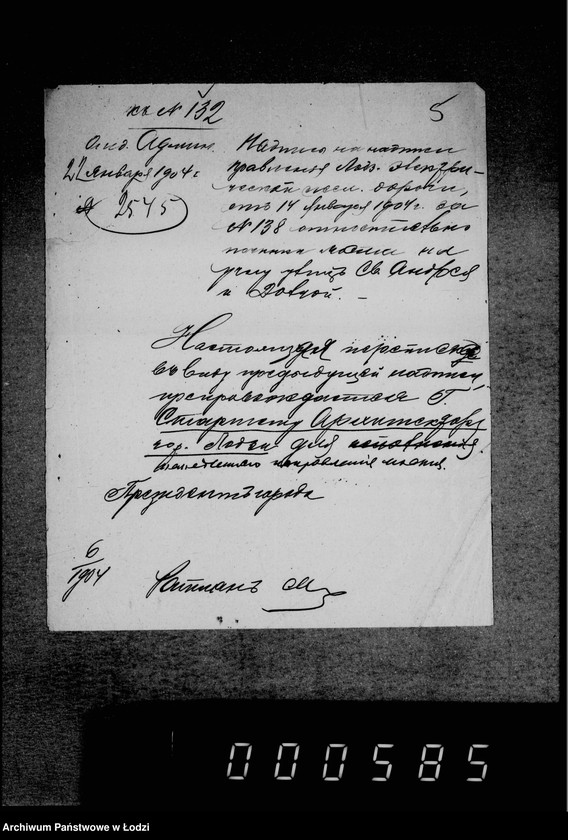 къ № 132
5
Отд. Админ.
22 Января 1904 г.
№ 2545
Надпись на надписи
правления Лодз. Электри-
ческой дороги,
отъ 14 Января 1904 г. за
№ 138 относительно
на
углу улицъ Св. Андрея
и Долгой. —
Настоящая переписка
въ виду предыдущей надписи,
препровождается Г.
Старшему Архитектору
гор. Лодзи для
направления
Президентъ города
6
1904
000585
Archiwum Państwowe w Łodzi